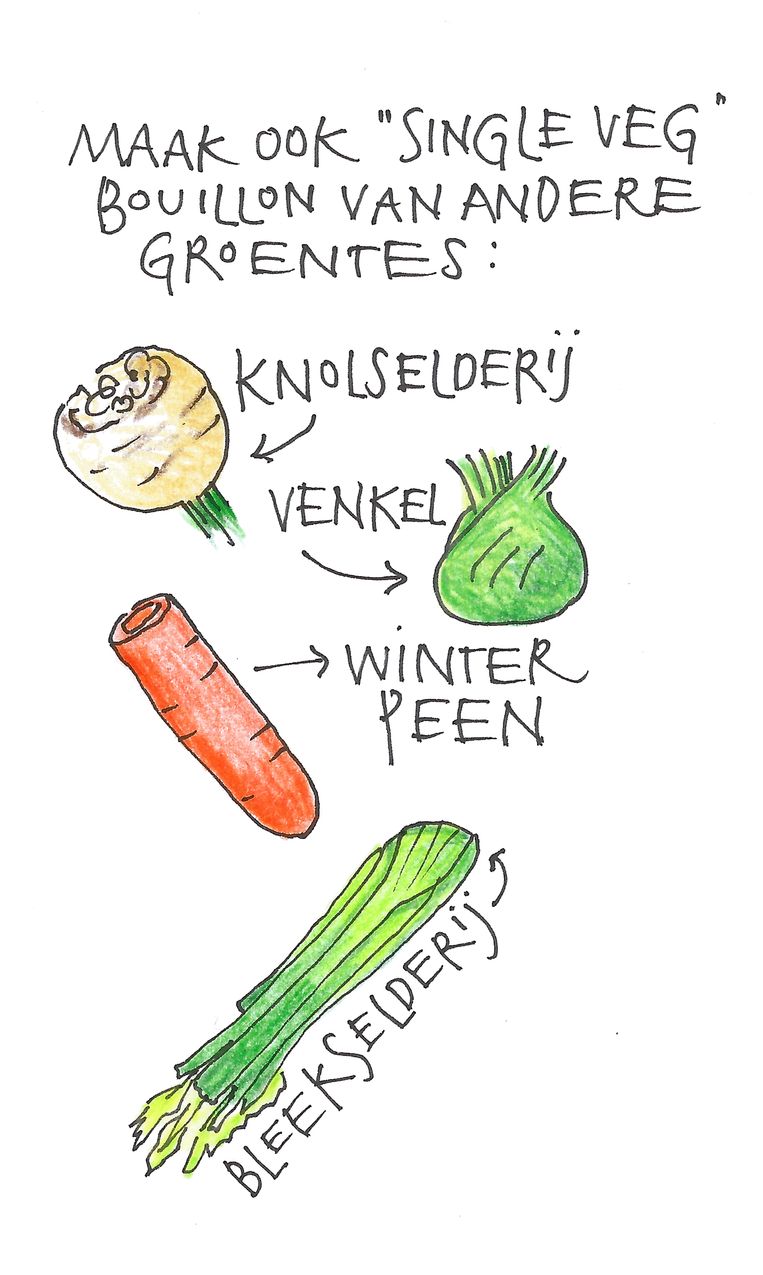 MAAK OOK "SINGLE VEG"
BOUILLON VAN ANDERE
GROENTES:
KNOLSELDERIJ
VENKEL
WINTER
PEEN
BLEEKSELDERIJ